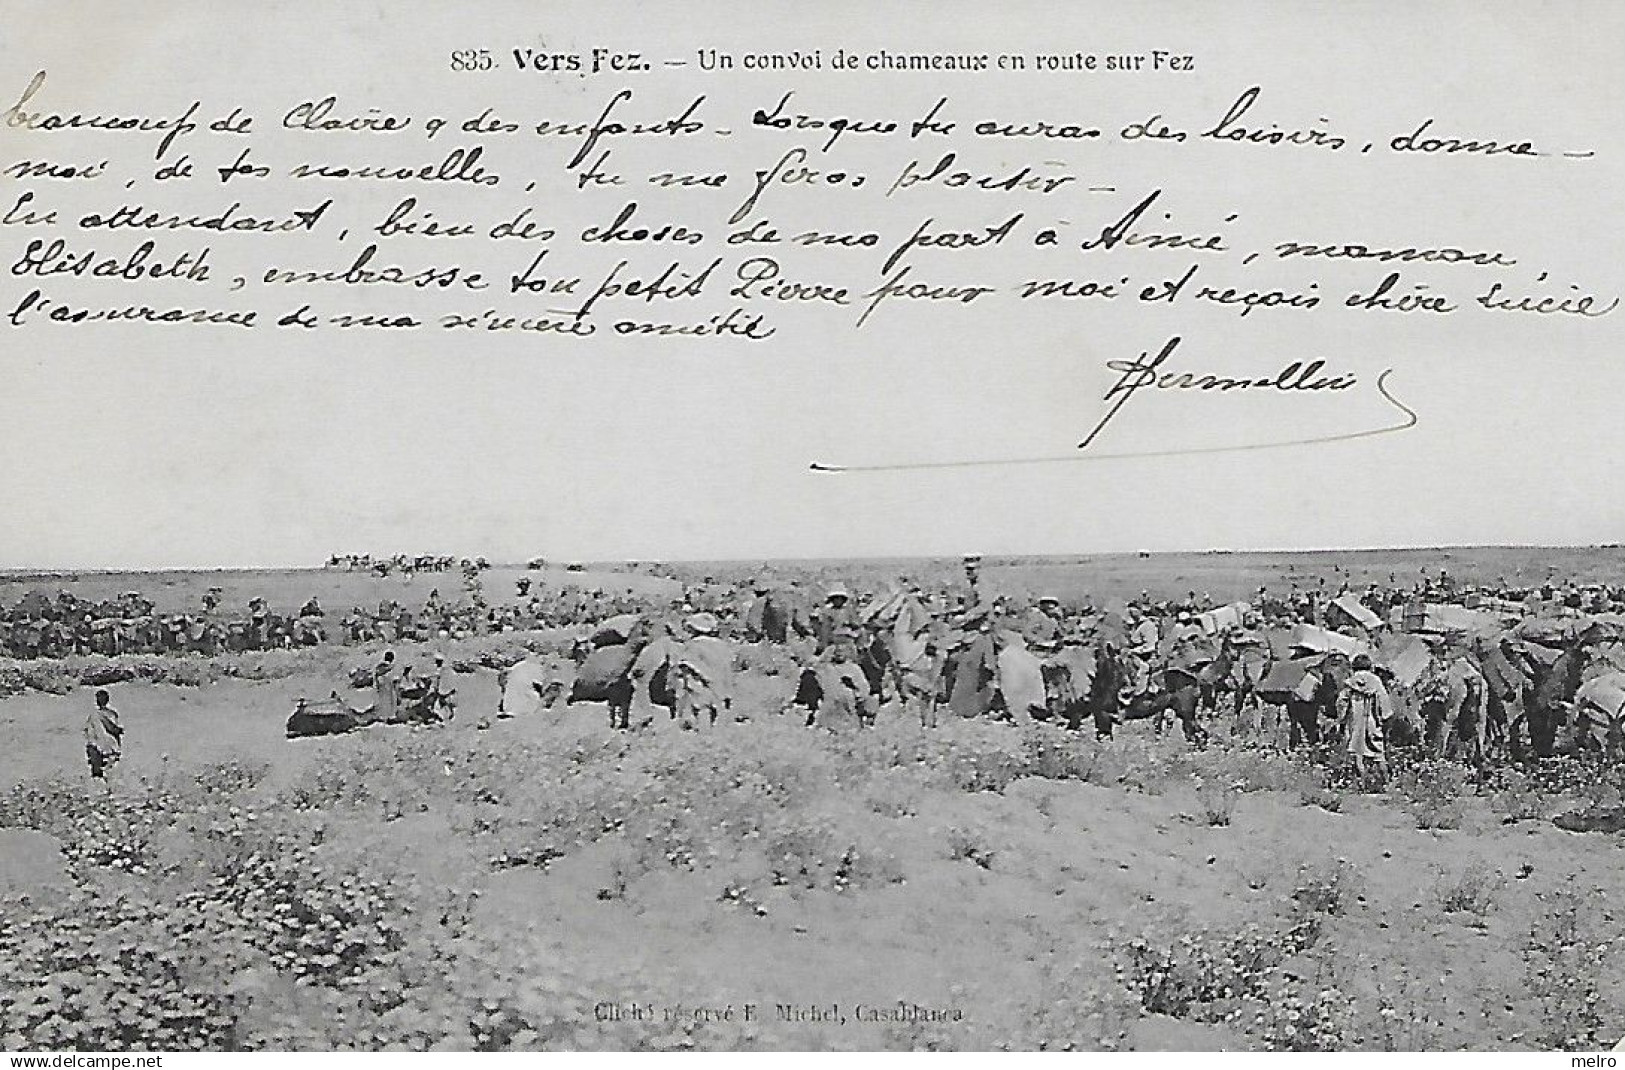 835. Vers Fez. — Un convoi de chameaux en route sur Fez
beaucoup de Claire & des enfants - Lorsque tu auras des loisirs, donne-
moi, de tes nouvelles, tu me feras plaisir -
En attendant, bien des choses de ma part à Aimé, maman,
Elisabeth, embrasse ton petit Pierre pour moi et reçois chère Lucie
l'assurance de ma sincère amitié
Cliché réservé E. Michel, Casablanca
www.delcampe.net
melro